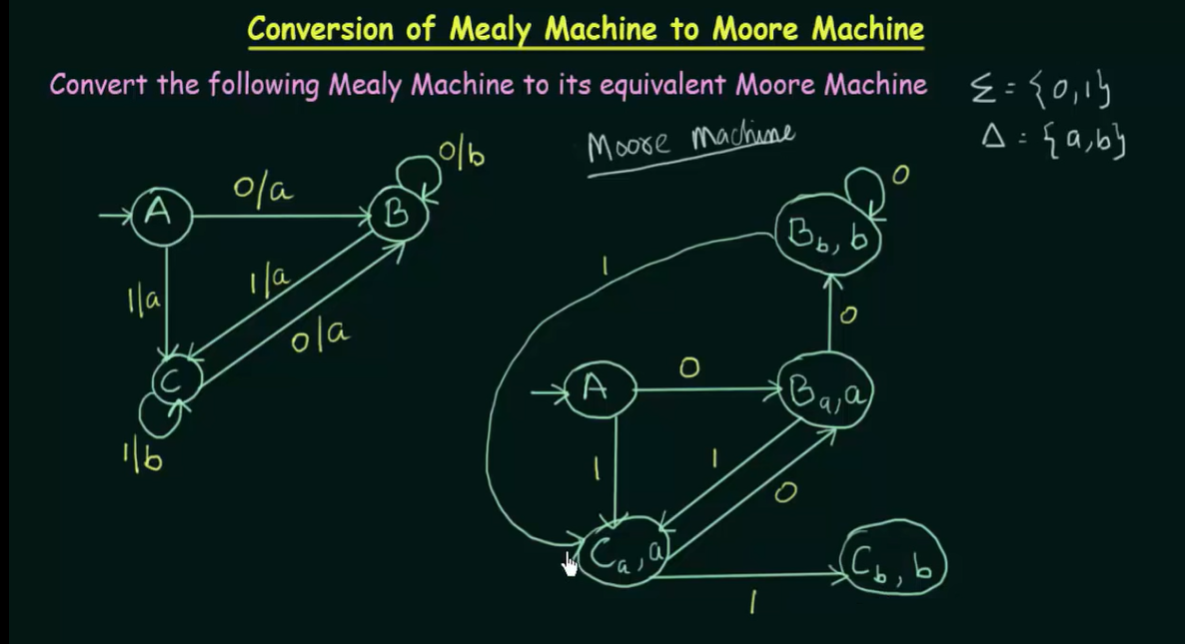 Conversion of Mealy Machine to Moore Machine
Convert the following Mealy Machine to its equivalent Moore Machine
Σ = {0,1}
Δ = {a,b}
Moore Machine
0/b
0/a
A
B
1/a
1/a
0/a
C
1/b
0
B_b, b
1
0
A
0
B_a, a
1
1
0
C_a, a
C_b, b
1